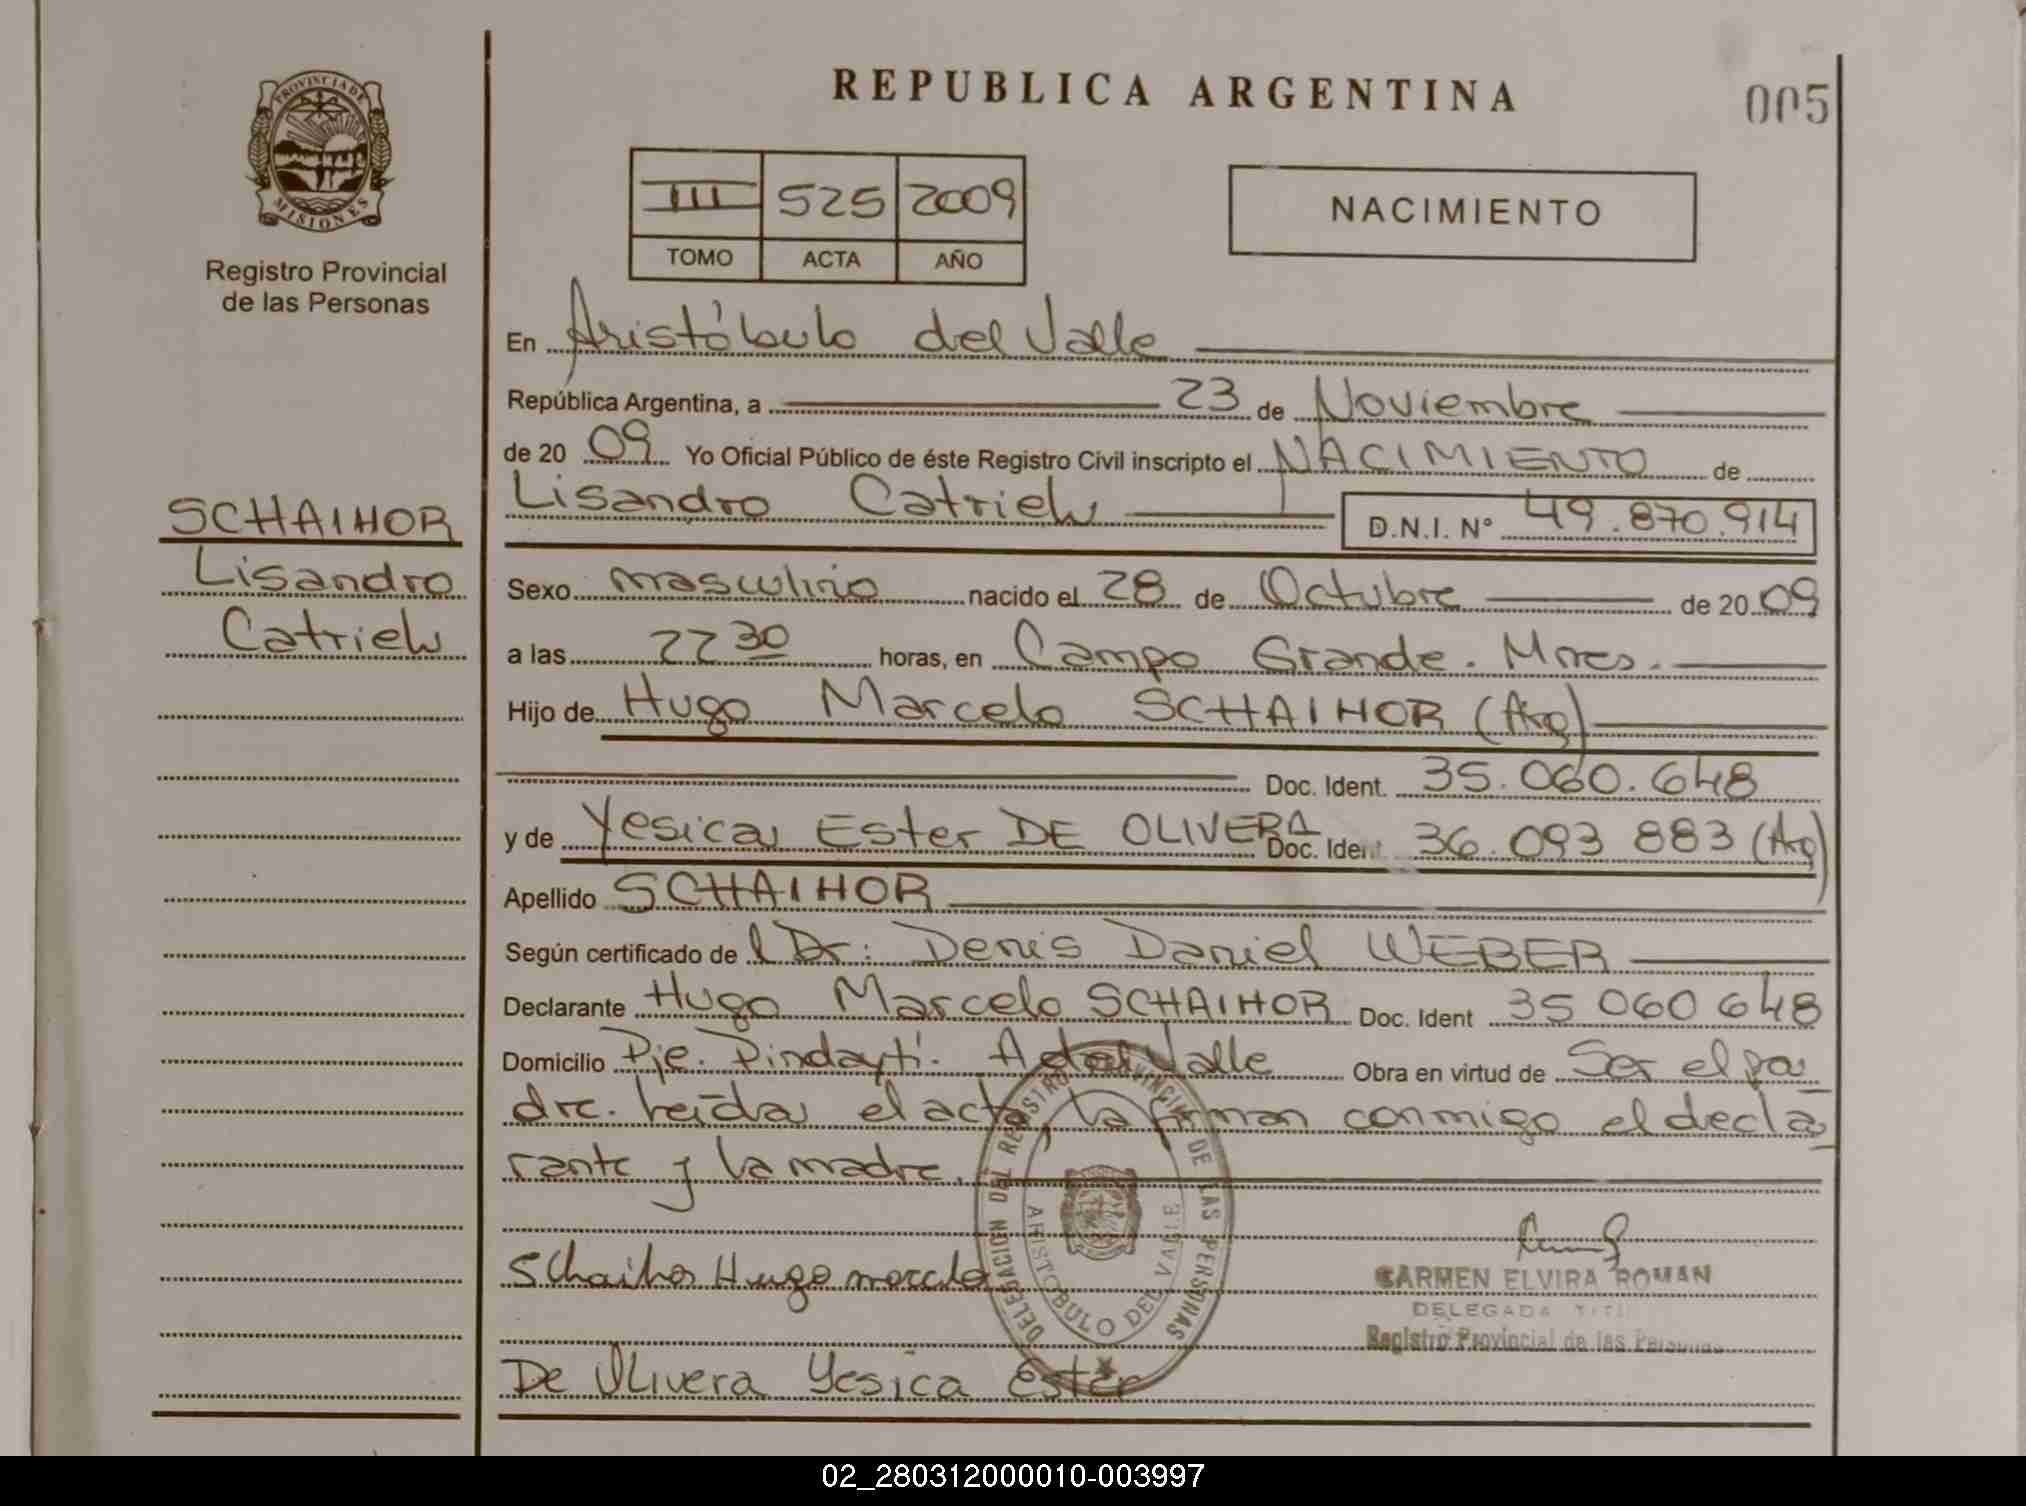 REPUBLICA ARGENTINA
005
PROVINCIA DE
MISIONES
Registro Provincial
de las Personas
III 525 2009
TOMO ACTA AÑO
NACIMIENTO
En Aristóbulo del Valle
República Argentina, a 23 de Noviembre
de 20 09 Yo Oficial Público de éste Registro Civil inscripto el NACIMIENTO de
Lisandro Catriel D.N.I. Nº 49.870.914
SCHAIHOR
Lisandro
Catriel
Sexo masculino nacido el 28 de Octubre de 20 09
a las 22 30 horas, en Campo Grande. Mnes.
Hijo de Hugo Marcelo SCHAIHOR (Arg)
Doc. Ident. 35.060.648
y de Yesica Ester DE OLIVERA Doc. Ident 36.093 883 (Arg)
Apellido SCHAIHOR
Según certificado de l Dr: Denis Daniel WEBER
Declarante Hugo Marcelo SCHAIHOR Doc. Ident 35 060 648
Domicilio Pje. Pindaytí. A del Valle Obra en virtud de Ser el pa
dre. leída el acta, la firman conmigo el decla
rante y la madre.
Schaihor Hugo marcelo
De Olivera Yesica Ester
DELEGACION DEL REGISTRO PROVINCIAL DE LAS PERSONAS
ARISTOBULO DEL VALLE
CARMEN ELVIRA ROMAN
DELEGADA
Registro Provincial de las Personas
02_280312000010-003997